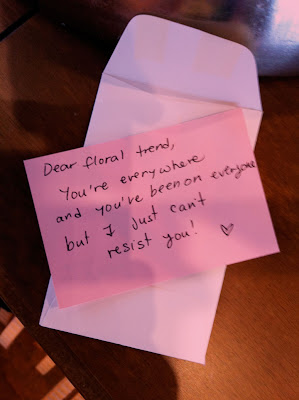 Dear floral trend,
You're everywhere
and you've been on everyone
but I just can't
resist you! ♡